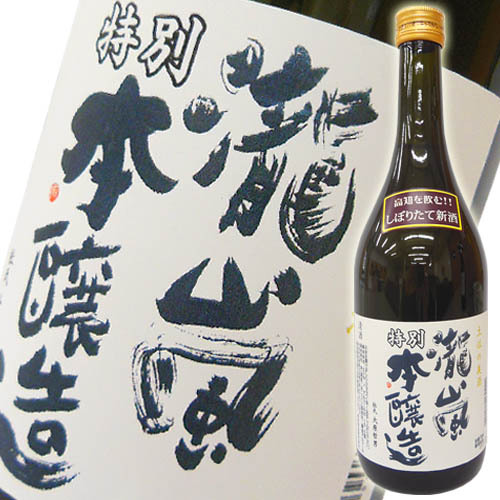 瀧山嵐
特別
本醸造
高知を飲む!!
しぼりたて新酒
土佐の美酒
瀧山嵐
特別
本醸造